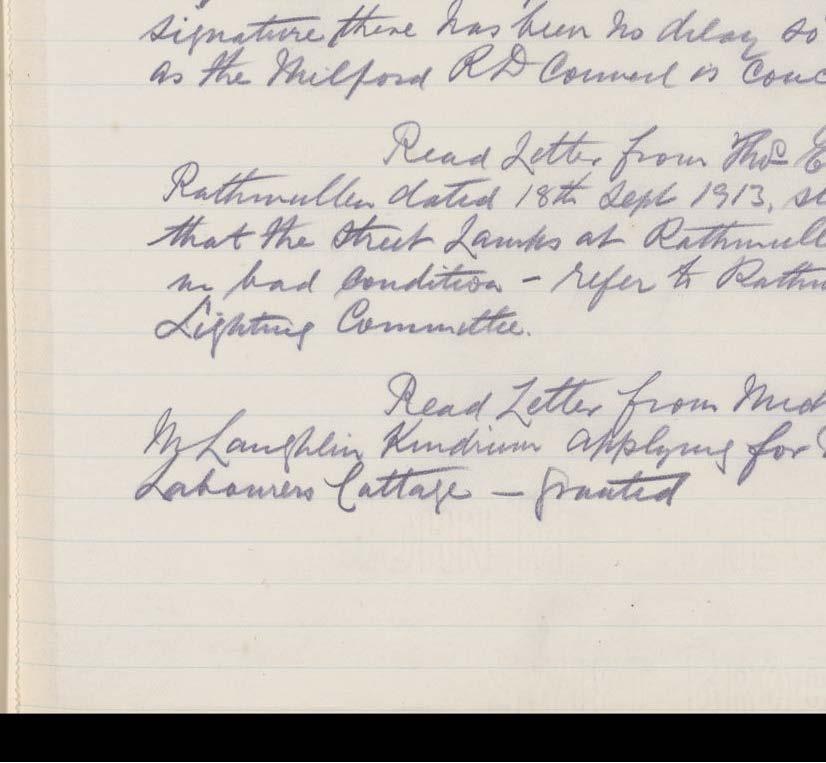 signature there has been no delay so
as the Milford RD Council is conc
Read Letter from Thos E
Rathmullen dated 18th Sept 1913, st
that the Street Lamps at Rathmull
in bad condition - refer to Rathm
Lighting Committee.
Read Letter from Mich
McLaughlin Kindrum applying for
Labourers Cottage - granted